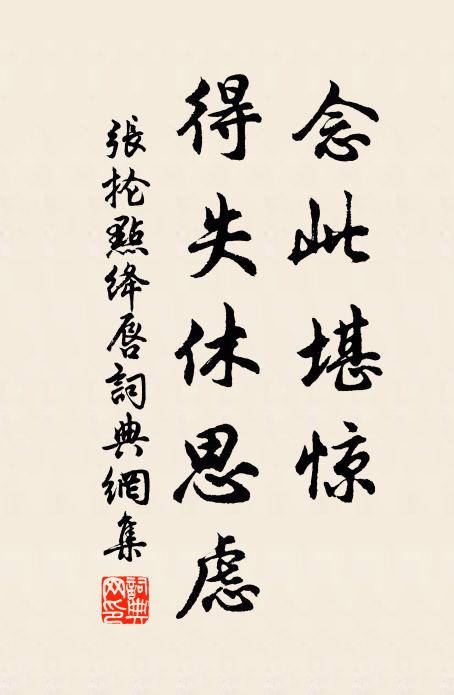 念此堪惊
得失休思虑
張抡點绛唇詞典網集
詞典網印